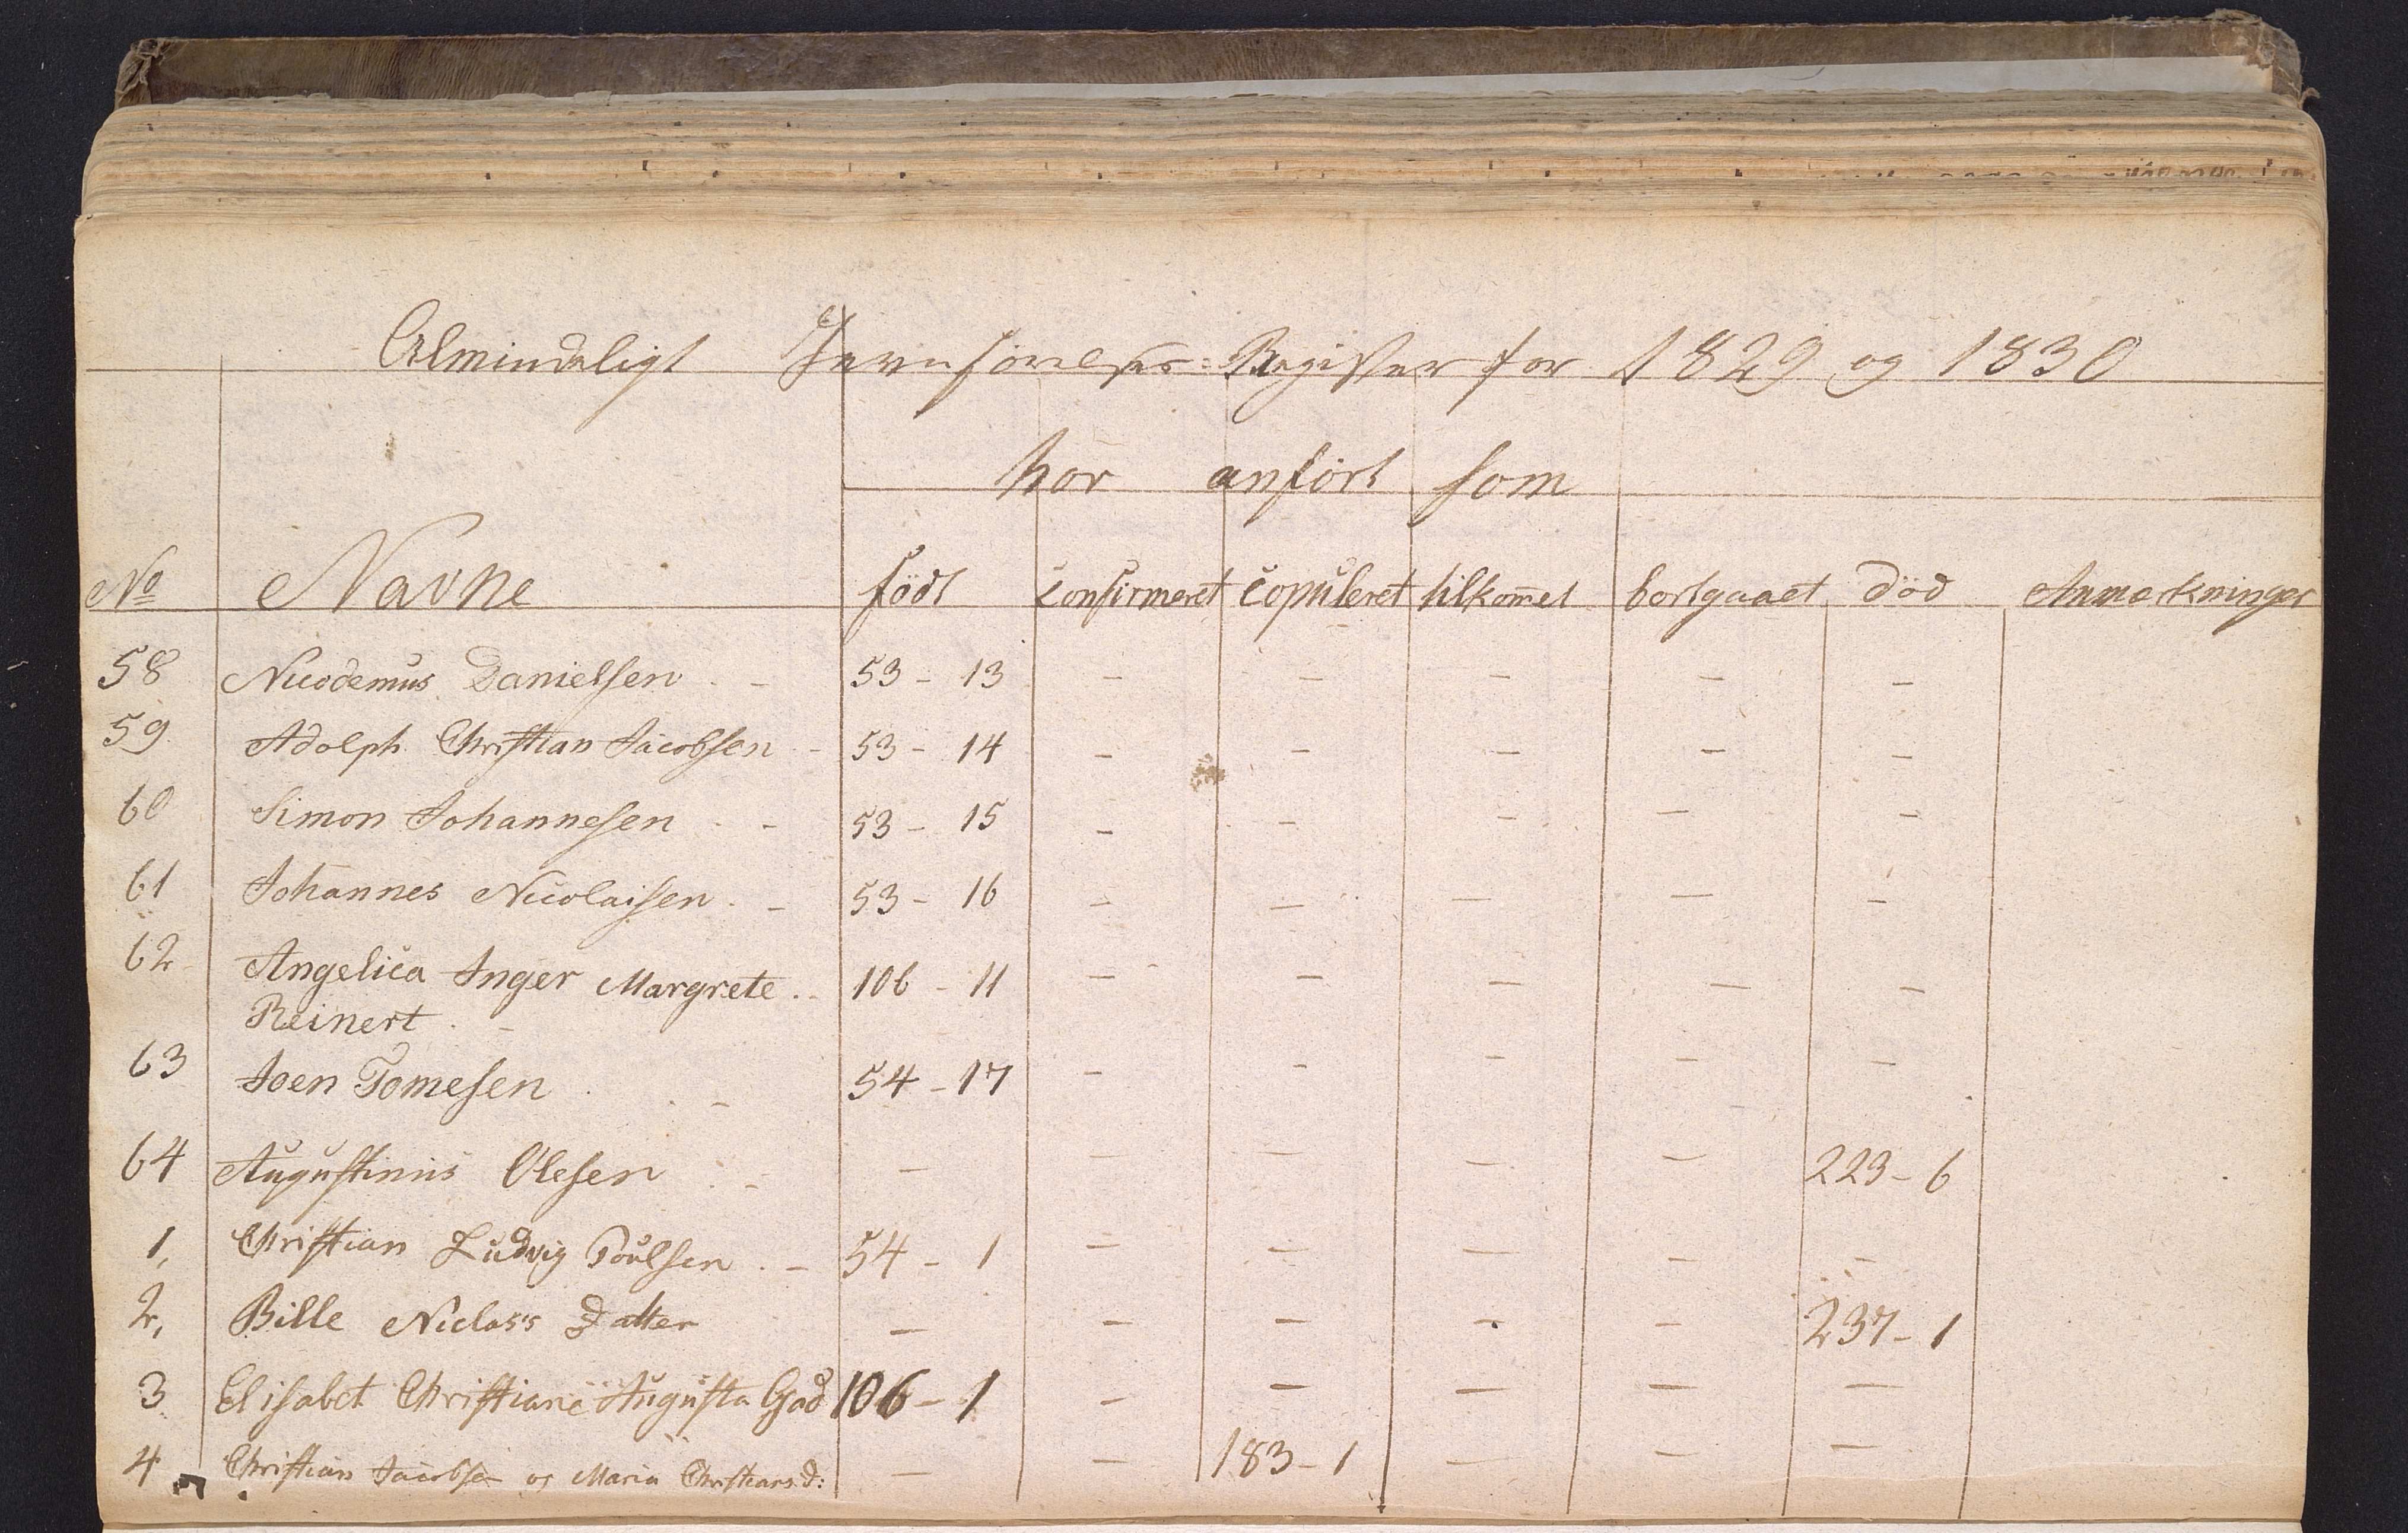 Almindeligt Jevnförelses-Register for 1829 og 1830
hvor anfört som
No Navne födt confirmeret copuleret tilkom̅et bortgaaet död Anmærkninger
58 Nicodemus Danielsen . - 53 - 13 - - - - -
59 Adolph Christian Jacobsen - 53 - 14 - - - - -
60 Simon Johannesen . - 53 - 15 - - - - -
61 Johannes Nicolaisen . - 53 - 16 - - - - -
62 Angelica Inger Margrete .. 106 - 11 - - - - -
Reinert . -
63 Joen Tomesen . - 54 - 17 - - - - -
64 Augustinus Olesen . - - - - - - 223 - 6
1, Christian Ludvig Poulsen . - 54 - 1 - - - - -
2, Bille Niclas's Datter - - - - - 237 - 1
3 Elisabet Christiane Augusta Gad 106 - 1 - - - - -
4 Christian Jacobsen og Maria Christiansd: - - 183 - 1 - - -